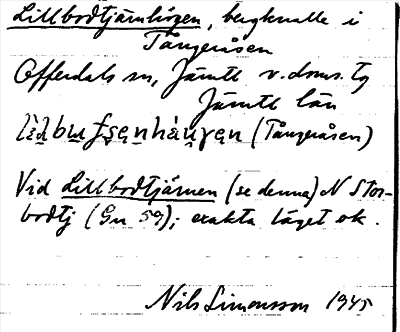 Lillbodtjärnhögen, bergknalle i
Tångeråsen
Offerdals sn, Jämtl v. doms. tg
Jämtl län
(Tångeråsen)
Vid Lillbodtjärnen (se denna) N Stor-
bodtj (Gn 59); exakta läget ok.
Nils Simonsson 1945